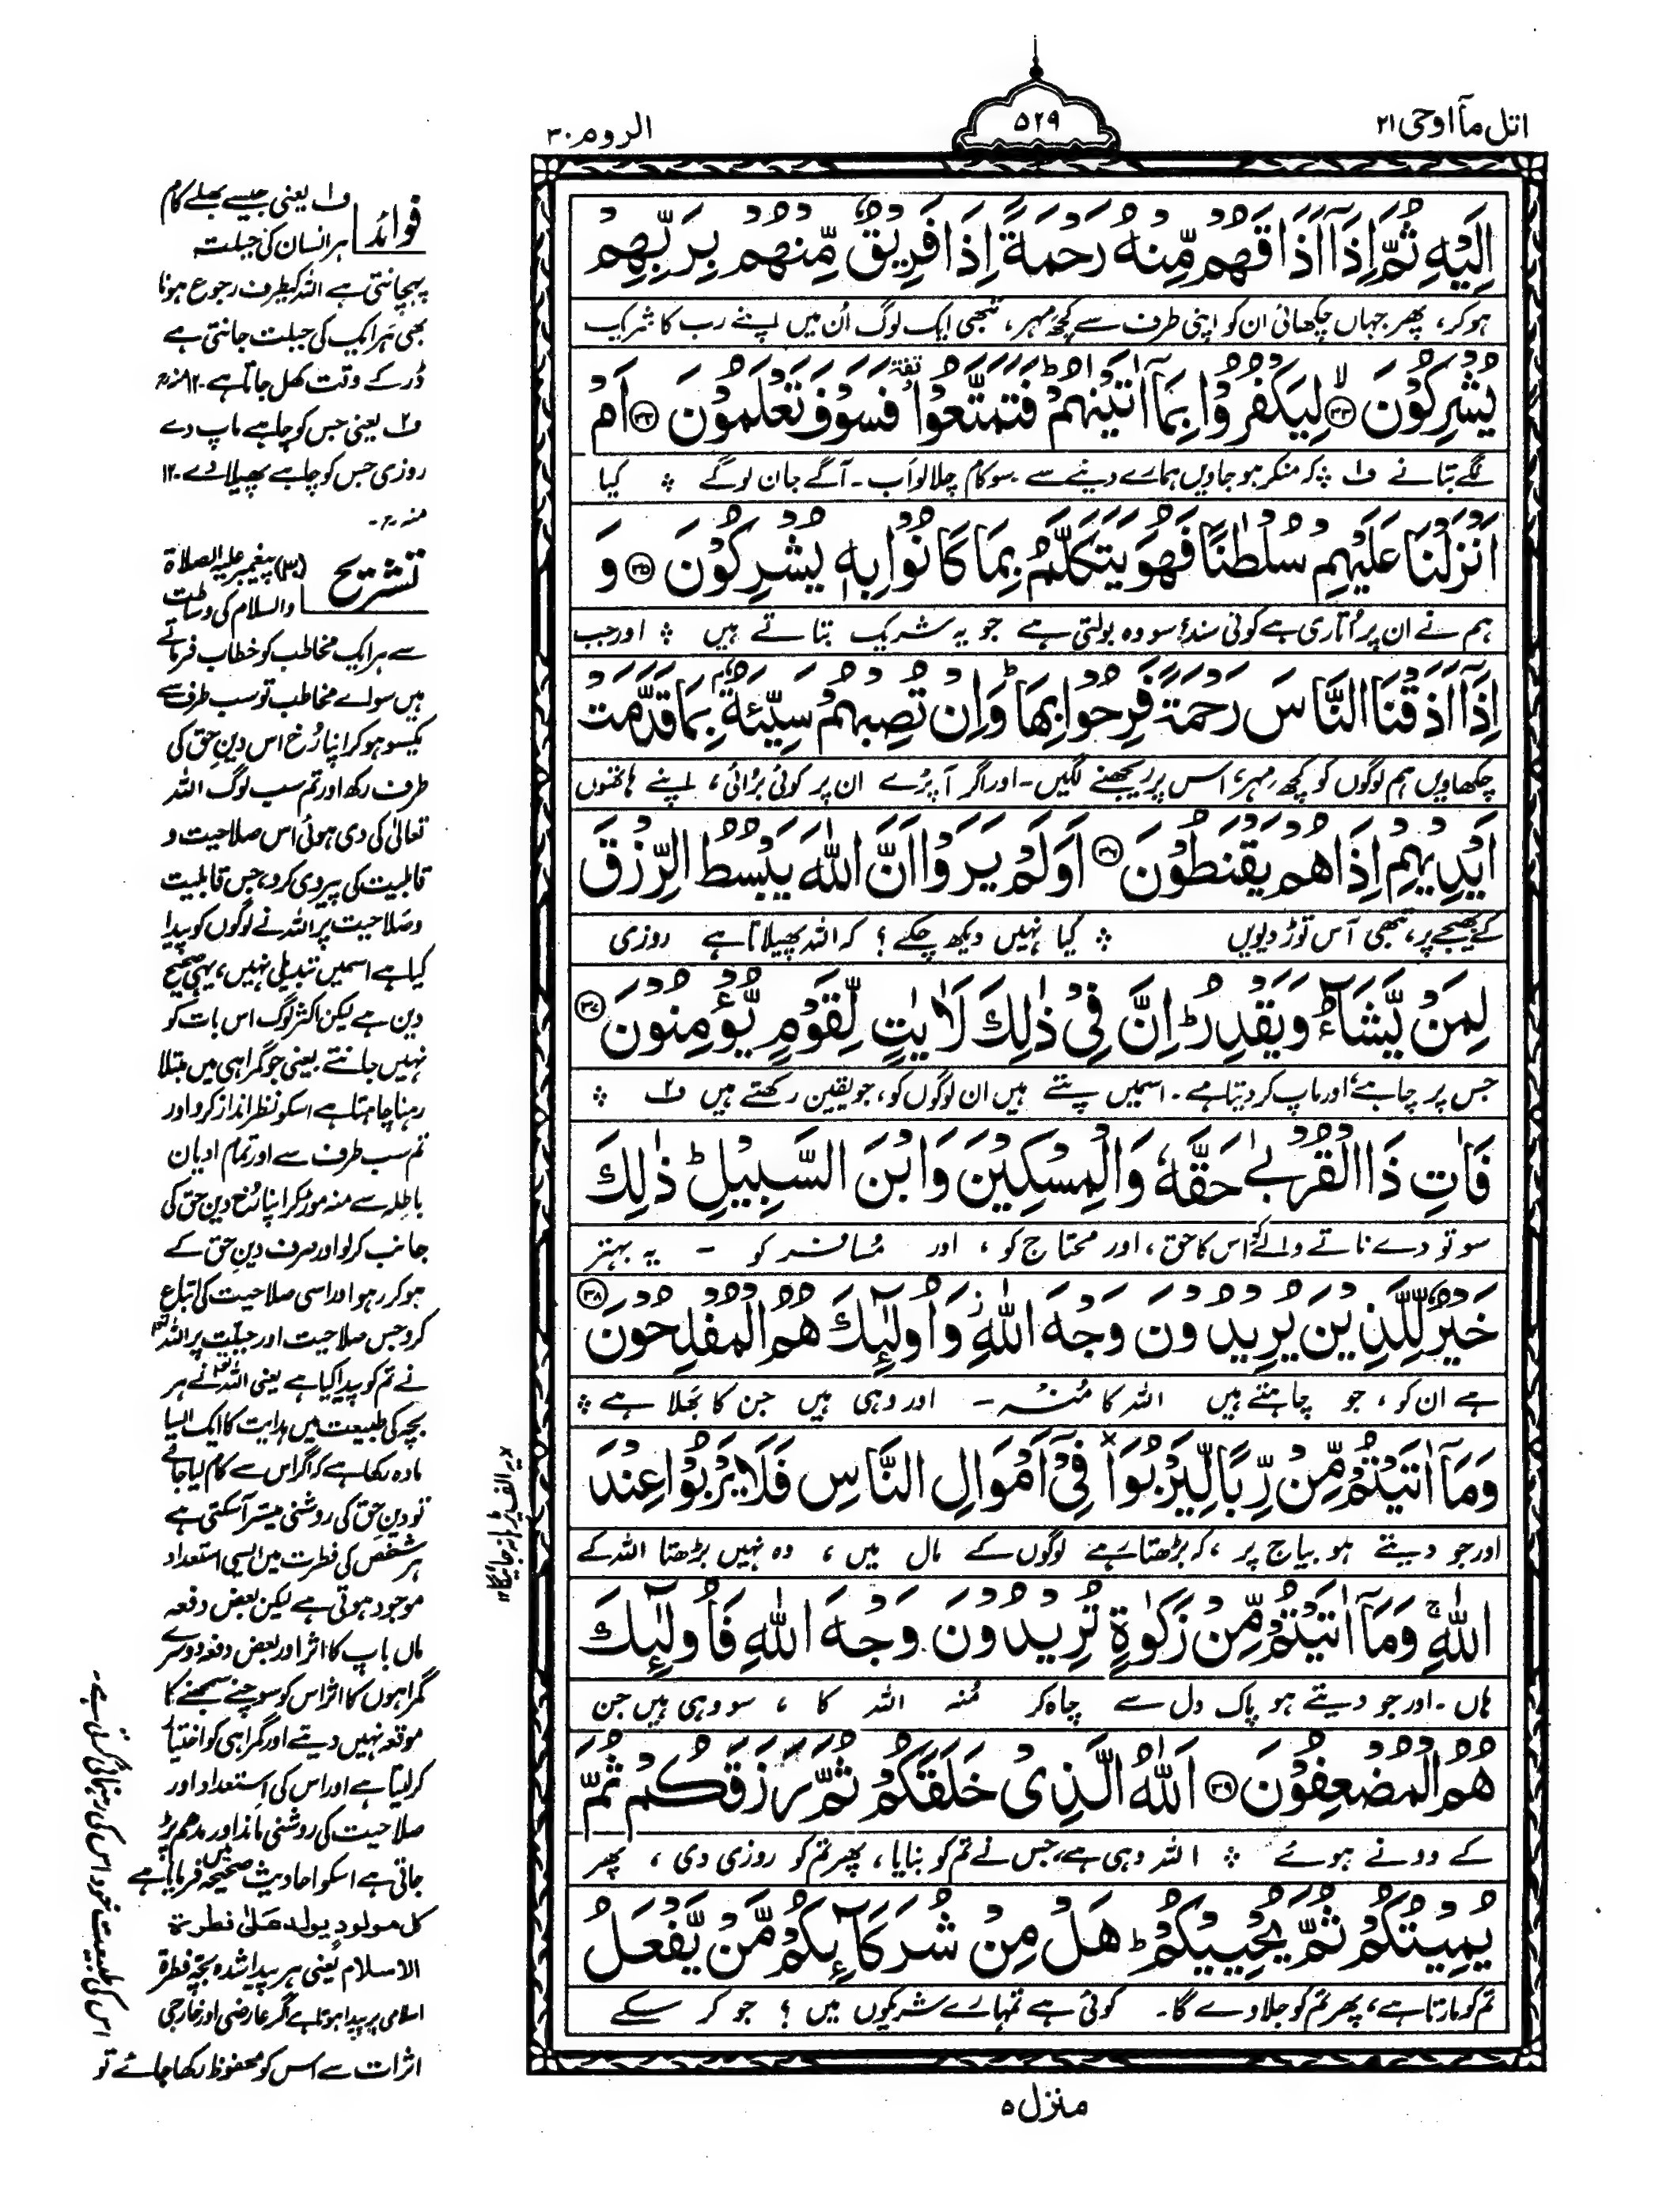 اتل مآ اوحی ۲۱
۵۲۹
الروم ۳۰
اِلَیْهِ ثُمَّ اِذَاۤ اَذَاقَهُمْ مِّنْهُ رَحْمَةً اِذَا فَرِیْقٌ مِّنْهُمْ بِرَبِّهِمْ
ہوکر، پھر جہاں چکھائی ان کو اپنی طرف سے کچھ مہر، تبھی ایک لوگ اُن میں اپنے رب کا شریک
یُشْرِكُوْنَ ﴿۳۳﴾ لِیَكْفُرُوْا بِمَاۤ اٰتَیْنٰهُمْ ؕ فَتَمَتَّعُوْا ٝ فَسَوْفَ تَعْلَمُوْنَ ﴿۳۴﴾ اَمْ
لگے بتانے ف۱ ۞ کہ منکر ہو جاویں ہمارے دینے سے سو کام چلا لو اَب ۔ آگے جان لوگے ۞ کیا
اَنْزَلْنَا عَلَیْهِمْ سُلْطٰنًا فَهُوَ یَتَكَلَّمُ بِمَا كَانُوْا بِهٖ یُشْرِكُوْنَ ﴿۳۵﴾ وَ
ہم نے ان پر اُتاری ہے کوئی سند؟ سو وہ بولتی ہے جو یہ شریک بتاتے ہیں ۞ اور جب
اِذَاۤ اَذَقْنَا النَّاسَ رَحْمَةً فَرِحُوْا بِهَا ؕ وَاِنْ تُصِبْهُمْ سَیِّئَةٌۢ بِمَا قَدَّمَتْ
چکھاویں ہم لوگوں کو کچھ مہر، اس پر ریجھنے لگیں ۔ اور اگر آ پڑے ان پر کوئی بُرائی، اپنے ہاتھوں
اَیْدِیْهِمْ اِذَا هُمْ یَقْنَطُوْنَ ﴿۳۶﴾ اَوَلَمْ یَرَوْا اَنَّ اللّٰهَ یَبْسُطُ الرِّزْقَ
کے بھیجے پر، تبھی آس توڑ دیویں ۞ کیا نہیں دیکھ چکے؟ کہ اللہ پھیلاتا ہے روزی
لِمَنْ یَّشَآءُ وَیَقْدِرُ ؕ اِنَّ فِیْ ذٰلِكَ لَاٰیٰتٍ لِّقَوْمٍ یُّؤْمِنُوْنَ ﴿۳۷﴾
جس پر چاہے، اور ماپ کر دیتا ہے ۔ اسمیں پتے ہیں ان لوگوں کو، جو یقین رکھتے ہیں ف۲ ۞
فَاٰتِ ذَا الْقُرْبٰی حَقَّهٗ وَالْمِسْكِیْنَ وَابْنَ السَّبِیْلِ ؕ ذٰلِكَ
سو تو دے ناتے والے کو اس کا حق، اور محتاج کو، اور مسافر کو ۔ یہ بہتر
خَیْرٌ لِّلَّذِیْنَ یُرِیْدُوْنَ وَجْهَ اللّٰهِ ؗ وَاُولٰٓئِكَ هُمُ الْمُفْلِحُوْنَ ﴿۳۸﴾
ہے ان کو، جو چاہتے ہیں اللہ کا مُنہ ۔ اور وہی ہیں جن کا بھلا ہے ۞
وَمَاۤ اٰتَیْتُمْ مِّنْ رِّبًا لِّیَرْبُوَا۠ فِیْۤ اَمْوَالِ النَّاسِ فَلَا یَرْبُوْا عِنْدَ
اور جو دیتے ہو بیاج پر، کہ بڑھتا رہے لوگوں کے مال میں، وہ نہیں بڑھتا اللہ کے
اللّٰهِ ۚ وَمَاۤ اٰتَیْتُمْ مِّنْ زَكٰوةٍ تُرِیْدُوْنَ وَجْهَ اللّٰهِ فَاُولٰٓئِكَ
ہاں ۔ اور جو دیتے ہو پاک دل سے چاہ کر مُنہ اللہ کا، سو وہی ہیں جن
هُمُ الْمُضْعِفُوْنَ ﴿۳۹﴾ اَللّٰهُ الَّذِیْ خَلَقَكُمْ ثُمَّ رَزَقَكُمْ ثُمَّ
کے دونے ہوئے ۞ اللہ وہی ہے، جس نے تم کو بنایا، پھر تم کو روزی دی، پھر
یُمِیْتُكُمْ ثُمَّ یُحْیِیْكُمْ ؕ هَلْ مِنْ شُرَكَآئِكُمْ مَّنْ یَّفْعَلُ
تم کو مارتا ہے، پھر تم کو جلاوے گا ۔ کوئی ہے تمہارے شریکوں میں؟ جو کر سکے
منزل ۵
فوائد
ف۱ یعنی جیسے بھلے کام
ہر انسان کی جبلت
پہچانتی ہے اللہ کیطرف رجوع ہونا
بھی ہر ایک کی جبلت جانتی ہے
ڈر کے وقت کھل جاتا ہے ۔ ۱۲ منہ رح
ف۲ یعنی جس کو چاہے ماپ دے
روزی جس کو چاہے پھیلا دے ۔ ۱۲
منہ رح ۔
تشریح
(۳۰) پیغمبر علیہ الصلاۃ
والسلام کی وساطت
سے ہر ایک مخاطب کو خطاب فرماتے
ہیں سو اے مخاطب تو سب طرف سے
یکسو ہو کر اپنا رُخ اس دین حق کی
طرف رکھ اور تم سب لوگ اللہ
تعالیٰ کی دی ہوئی اس صلاحیت و
قابلیت کی پیروی کرو، جس قابلیت
وصلاحیت پر اللہ نے لوگوں کو پیدا
کیا ہے اسمیں تبدیلی نہیں، یہی صحیح
دین ہے لیکن اکثر لوگ اس بات کو
نہیں جانتے یعنی جو گمراہی میں مبتلا
رہنا چاہتا ہے اسکو نظر انداز کرو اور
تم سب طرف سے اور تمام ادیان
باطلہ سے منہ موڑ کر اپنا رُخ دین حق کی
جانب کرلو اور صرف دین حق کے
ہو کر رہو اور اسی صلاحیت کی اتباع
کرو جس صلاحیت اور جبلّت پر اللہ تعالیٰ
نے تم کو پیدا کیا ہے یعنی اللہ تعالیٰ نے ہر
بچہ کی طبیعت میں ہدایت کا ایک ایسا
مادہ رکھا ہے کہ اگر اس سے کام لیا جائے
تو دین حق کی روشنی میسّر آسکتی ہے
ہر شخص کی فطرت میں ایسی استعداد
موجود ہوتی ہے لیکن بعض دفعہ
ماں باپ کا اثر اور بعض دفعہ دوسرے
گمراہوں کا اثر اس کو سوچنے سمجھنے کا
موقعہ نہیں دیتے اور گمراہی کو اختیار
کرلیتا ہے اور اس کی استعداد اور
صلاحیت کی روشنی ماند اور مدھم پڑ
جاتی ہے اسکو احادیث صحیحہ میں فرمایا ہے
کل مولود یولد علیٰ فطرۃ
الاسلام یعنی ہر پیدا شدہ بچہ فطرۃ
اسلامی پر پیدا ہوتا ہے اگر عارضی اور خارجی
اثرات سے اس کو محفوظ رکھا جائے تو
اس کی طبیعت خود اس کی رہنمائی کرتی ہے ۔